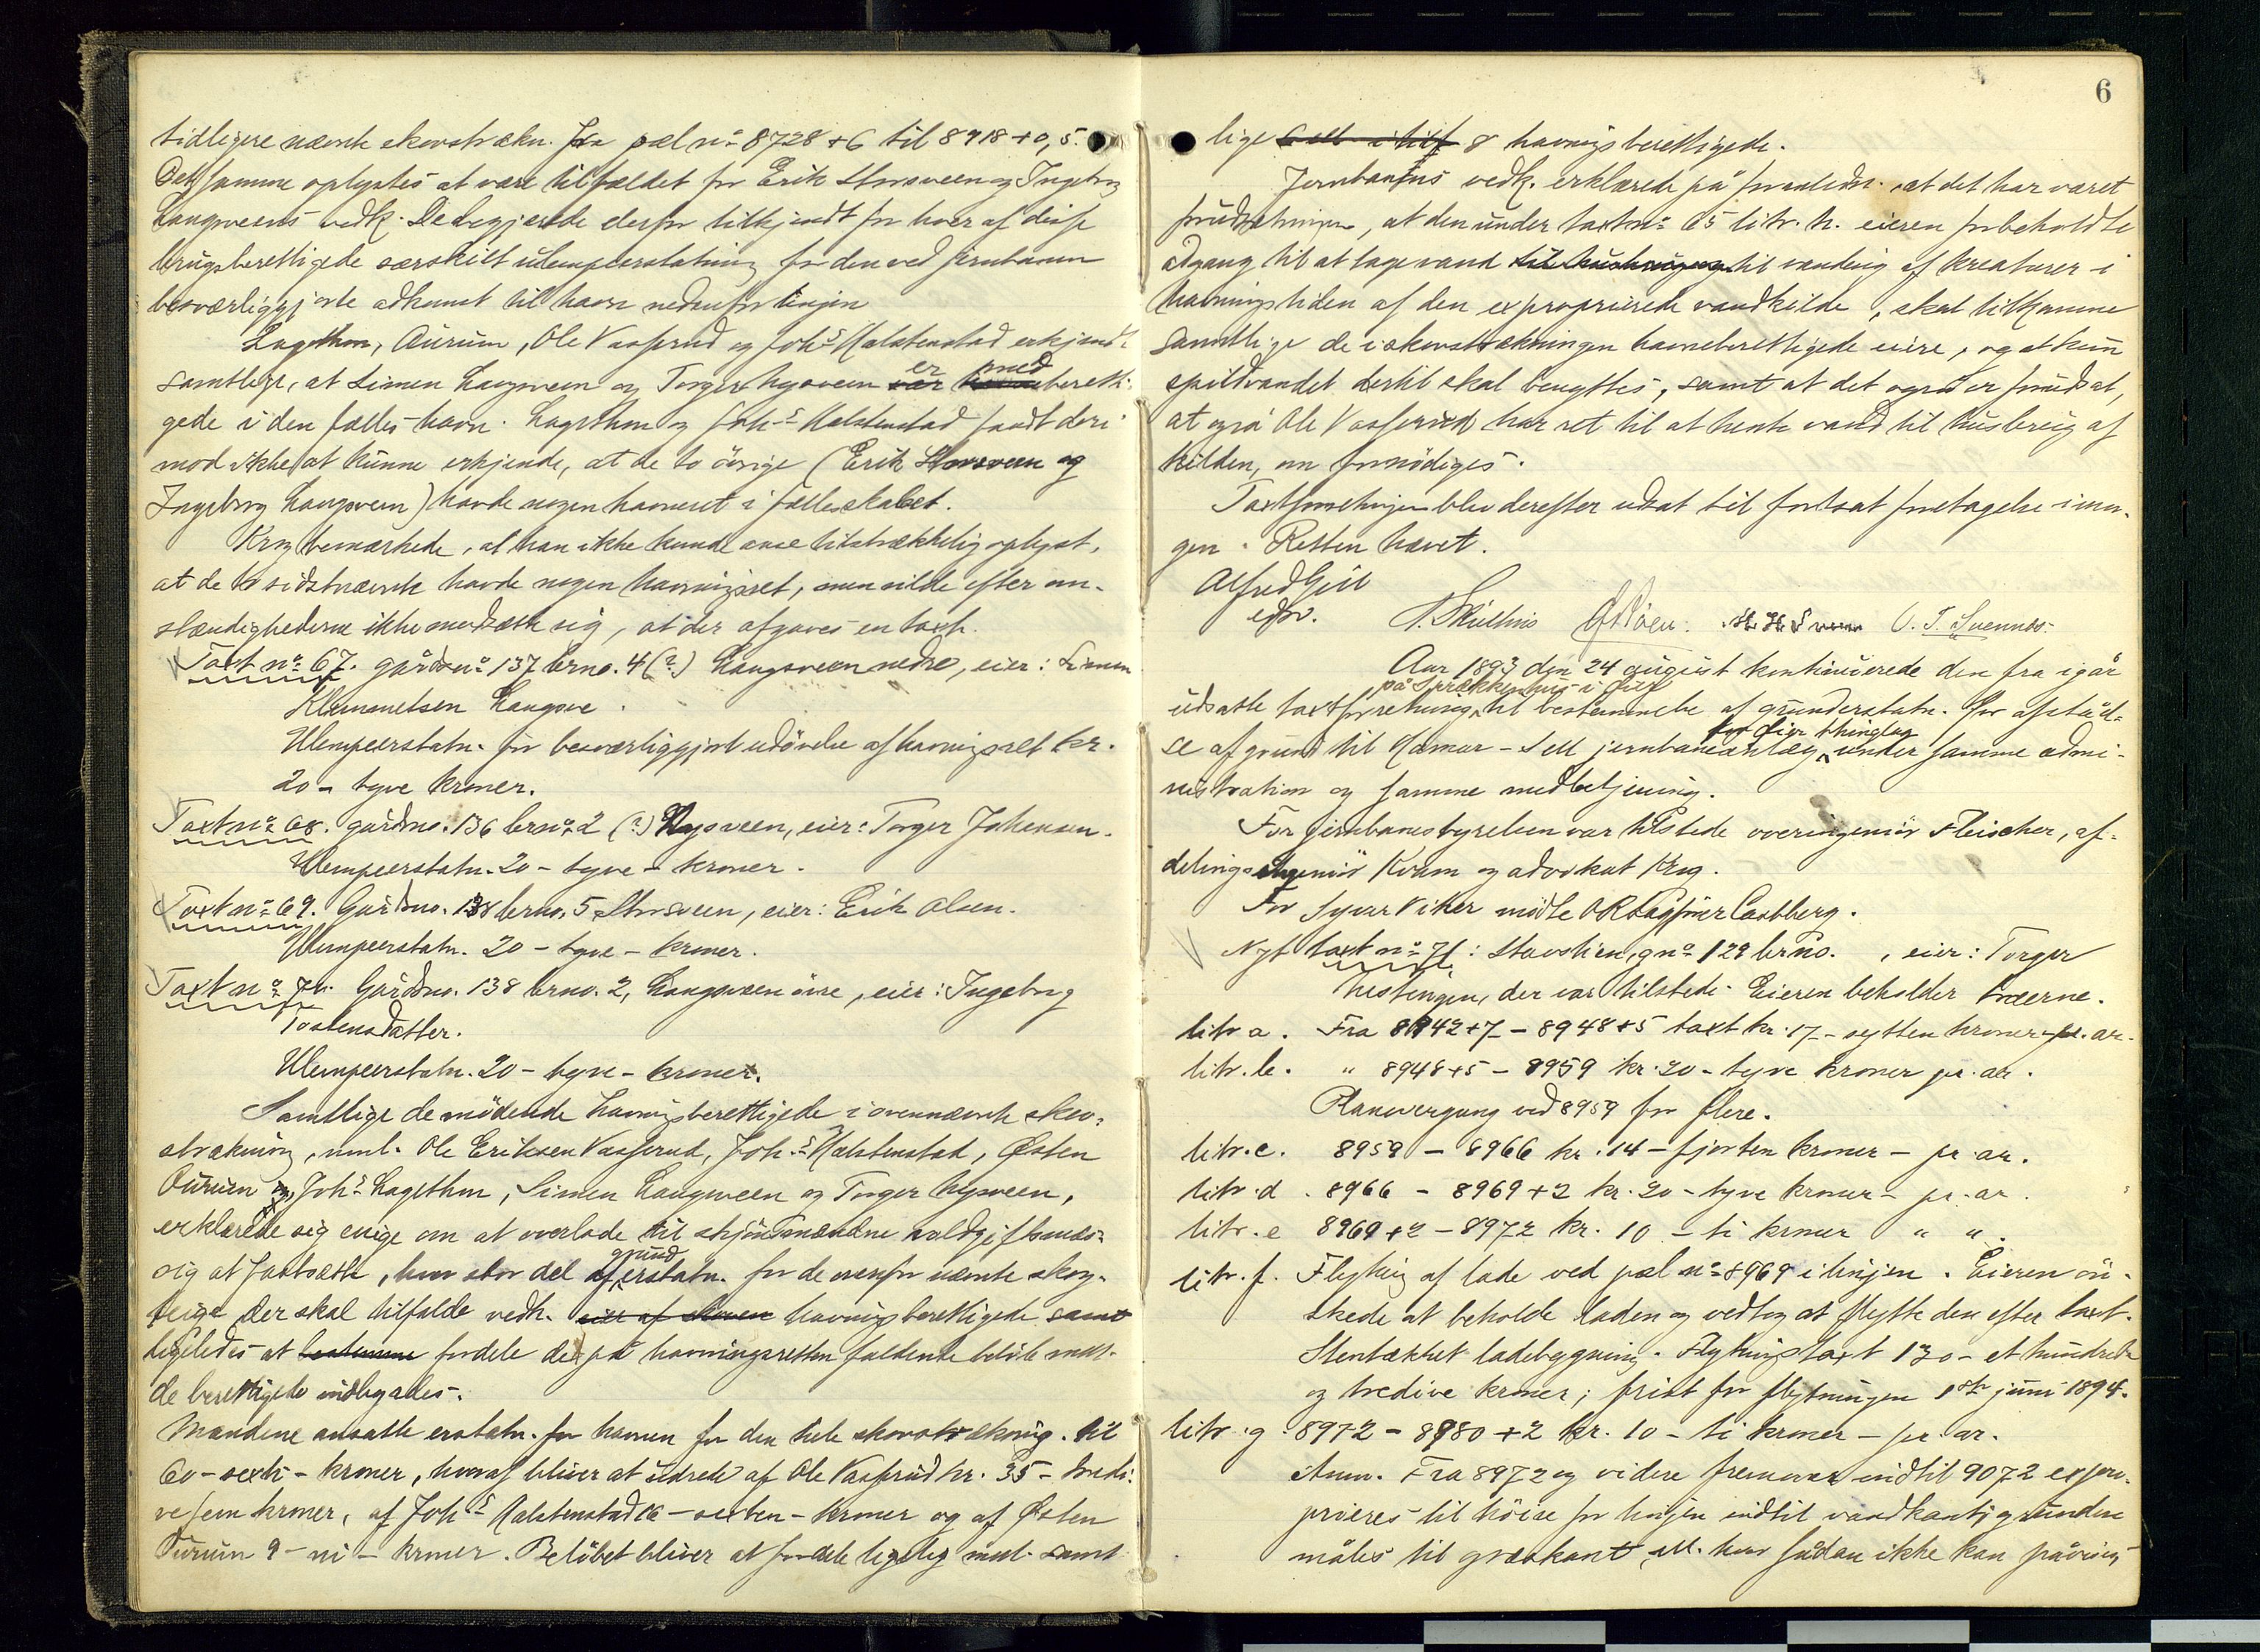 tidligere nævnte skovstrækn. Fra pæl no 8728+6 til 8918+0,5.
Det samme oplystes at være tilfældet for Erik Storsveen og Ingeborg
Langsveens vedk. De begjærede derfor tilkjendt for hver af disse
brugsberettigede særskilt ulempeerstatning for den ved jernbanen
besværliggjorte adkomst til havn nedenfor linjen
Lagethon, Aurum, Ole Vasrud og Johs Halstenstad erkjendte
samtlige, at Simen Langsveen og Torger Nysveen er med beretti-
gede i den fælles havn. Lagethon og Johs Halstenstad fandt deri-
mod ikke at kunne erkjende, at de to øvrige (Erik Storsveen og
Ingeborg Langsveen) havde nogen havneret i fællesskabet.
Krog bemærkede, at han ikke kunde anse tilstrækkelig oplyst,
at de to sidstnævnte havde nogen havningsret, men vilde efter om-
stændighederne ikke modsætte sig, at der afgaves en taxt.
Taxt no 67. gårdsno 137 brno. 4 (?) Langsveen nedre, eier: Simen
Klemmetsen Langsve .
Ulempeerstatn. for besværliggjort udøvelse af havningsret kr.
20 - tyve kroner.
Taxt no 68. gårdsno. 136 brno 2 (?) Nysveen, eier: Torger Johansen.
Ulempeerstatn. 20 - tyve - kroner.
Taxt no 69. Gårdsno. 138 brno. 5 Storsveen, eier: Erik Olsen.
Ulempeerstatn. 20 - tyve - kroner.
Taxt no 70. Gårdsno. 138 brno. 2, Langsveen øvre, eier: Ingeborg
Tostensdatter.
Ulempeerstatn. 20 - tyve - kroner.
Samtlige de mødende havningsberettigede i ovennævnte skov-
strækning, nml. Ole Eriksen Vasrud, Johs Halstenstad, Østen
Aurum og Johs Lagethon, Simen Langsveen og Torger Nysveen,
erklærede sig enige om at overlade til skjønsmændene voldgiftsmæs-
sig at fastsætte, hvor stor del af grunderstatn. for de ovenfor nævnte skog-
teige der skal tilfalde vedk. eier af skoven havningsberettigede samt
ligeledes at bestemme fordele det på havningsretten faldende beløb mell.
de berettigede indbyrdes.
Mændene ansatte erstatn. for havnen for den hele skovstrækning til
60 - sexti - kroner, hvoraf bliver at udrede af Ole Vasrud kr. 35 - tredi-
ve fem kroner, af Johs Halstenstad 16 - sexten - kroner og af Østen
Aurum 9 - ni - kroner. Beløbet bliver at fordele ligelig mell. samt-
6
lige 8 havningsberettigede.
Jernbanens vedk. erklærede på foranledn. at det har været
forudsætningen, at den under taxtno 65 litr. h. eieren forbeholdte
adgang til at tage vand til husbrug og til vanding af kreaturer i
havningstiden af den exproprierede vandkilde, skal tilkomme
samtlige de i skovstrækningen havneberettigede eiere, og at kun
spildvandet dertil skal benyttes, samt at det også er forudsat,
at også Ole Vasrud har ret til at hente vand til husbrug af
kilden, om fornødiges.
Taxtforretningen blev derefter udsat til fortsat foretagelse imor-
gen. Retten hævet.
Alfred Gill
edsv. O. T. Svennæs.
Aar 1893 den 24 august kontinuerede den fra igår
på
udsatte taxtforretning til bestemmelse af grunderstatn. for afståel-
for Øier thinglag
se af grund til Hamar - Sell jernbaneanlæg under samme admi-
nistration og samme medbetjening.
For jernbanestyrelsen var tilstede overingeniør Fleischer, af-
delingsingeniør Kvam og advokat Krog.
For Syver Viker mødte ORsagfører Castberg.
Nyt taxt no 71: Stavslien, gno 129 brno. , eier: Torger
, der var tilstede. Eieren beholder træerne.
litr a. Fra 8942+7 - 8948+5 taxt kr. 17 - sytten kroner pr. ar.
litr. b. " 8948+5 - 8959 kr. 20 - tyve kroner pr. ar.
Planovergang ved 8959 for flere.
litr. c. 8959 - 8966 kr. 14 - fjorten kroner - pr. ar.
litr. d. 8966 - 8969+2 kr. 20 - tyve kroner - pr. ar.
litr. e 8969+2 - 8972 kr. 10 - ti kroner " " .
litr. f. Flytning af lade ved pæl no 8969 i linjen. Eieren øn-
skede at beholde laden og vedtog at flytte den efter taxt.
Stentækket ladebygning. Flytningstaxt 130 - et hundrede
og tredive kroner; frist for flytningen 1ste juni 1894.
litr. g. 8972 - 8980+2 kr. 10 - ti kroner - pr. ar.
Anm. Fra 8972 og videre fremover indtil 9072 expro-
prieres til høire for linjen indtil vandkant; grunden
måles til græskant, ell. hvor sådan ikke kan påvises